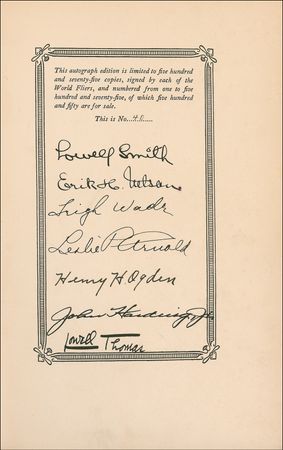 This autograph edition is limited to five hundred
and seventy-five copies, signed by each of the
World Fliers, and numbered from one to five
hundred and seventy-five, of which five hundred
and fifty are for sale.
This is No.
Lowell Smith
Erik H. Nelson
Leigh Wade
Leslie P. Arnold
Henry H Ogden
John Harding, Jr.
Lowell Thomas